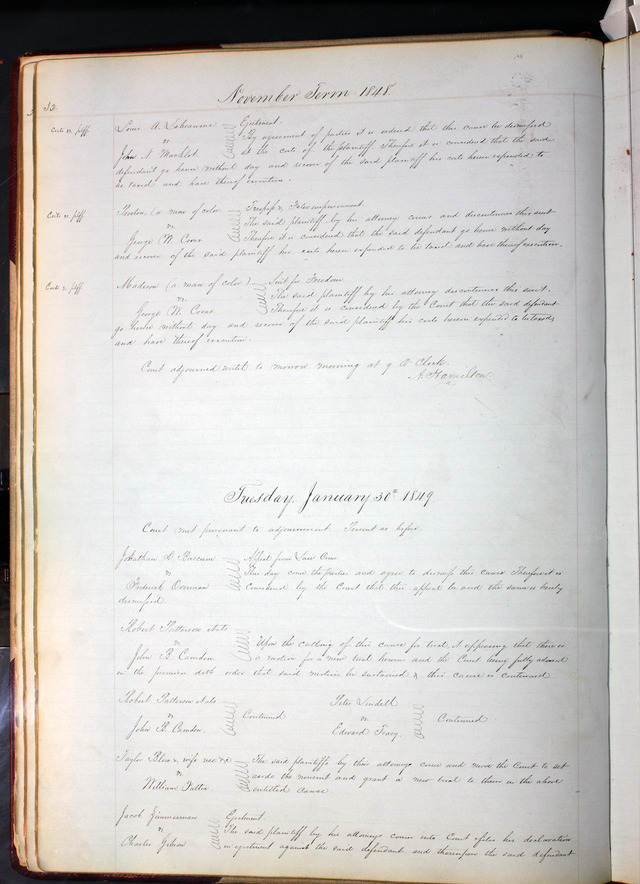 32
November Term 1848.
Costs vs. plff. Louis A. Ejectment.
By agreement of parties it is ordered that this cause be dismissed
vs
John N. at the costs of the plaintiff Therefore it is considered that the said
defendant go hence without day and recover of the said plaintiff his costs herein expended to
be taxed and have thereof execution.
Costs vs. plff. Preston (a man of color Trespass & False imprisonment.
The said plaintiff by his attorney comes and discontinues this suit
vs.
George W. Coons Therefore it is considered that the said defendant go hence without day
and recover of the said plaintiff his costs herein expended to be taxed and have thereof execution.
Costs v. plff. Madison (a man of color) Suit for Freedom
The said plaintiff by his attorney discontinues this suit.
vs.
George W. Coons. Therefore it is considered by the Court that the said defendant
go hence without day and recover of the said plaintiff his costs herein expended to be taxed
and have thereof execution.
Court adjourned until to morrow morning at 9 O'Clock.
A. Hamilton.
Tuesday, January 30th 1849.
Court met pursuant to adjournment Present as before
Jonathan Appeal from Law Com
This day come the parties and agree to dismiss this cause Therefore it is
vs
Frederick considered by the Court that this appeal be and the same is hereby
dismissed.
Robert Patterson et als
Upon the calling of this cause for trial, it appearing that there is
vs
John B. Camden a motion for a new trial herein and the Court being fully advised
in the premises doth order that said motion be sustained & this cause is continued
Robert Patterson et als Peter Lindell
vs Continued vs Continued
John B. Camden. Edward Tracy.
Taylor Blow & wife use &c The said plaintiffs by their attorneys come and move the Court to set
vs aside the nonsuit and grant a new trial to them in the above
William entitled cause
Jacob Zimmerman Ejectment.
vs The said plaintiff by his attorneys comes into Court files his declaration
Charles in ejectment against the said defendant and thereupon the said defendant